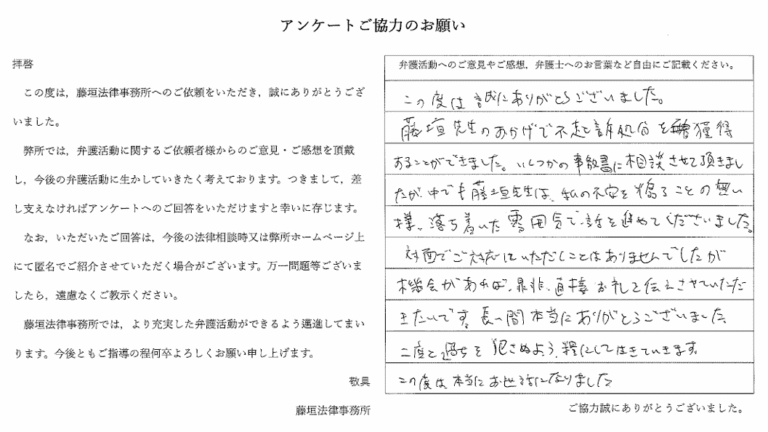 アンケートご協力のお願い
拝啓
この度は，藤垣法律事務所へのご依頼をいただき，誠にありがとうござ
いました。
弊所では，弁護活動に関するご依頼者様からのご意見・ご感想を頂戴
し，今後の弁護活動に生かしていきたく考えております。つきまして，差
し支えなければアンケートへのご回答をいただけますと幸いに存じます。
なお，いただいたご回答は，今後の法律相談時又は弊所ホームページ上
にて匿名でご紹介させていただく場合がございます。万一問題等ございま
したら，遠慮なくご教示ください。
藤垣法律事務所では，より充実した弁護活動ができるよう邁進してまい
ります。今後ともご指導の程何卒よろしくお願い申し上げます。
敬具
藤垣法律事務所
弁護活動へのご意見やご感想，弁護士へのお言葉など自由にご記載ください。
この度は誠にありがとうございました。
藤垣先生のおかげで不起訴処分を獲得
することができました。いくつかの事務所に相談させて頂きまし
たが、中でも藤垣先生は、私の不安を煽ることの無い
様、落ち着いた雰囲気で話を進めてくださいました。
対面でご対応いただくことはありませんでしたが
機会があれば、是非、直接お礼を伝えさせていただ
きたいです。長い間本当にありがとうございました。
二度と過ちを犯さぬよう、糧にして生きていきます。
この度は本当にお世話になりました
ご協力誠にありがとうございました。